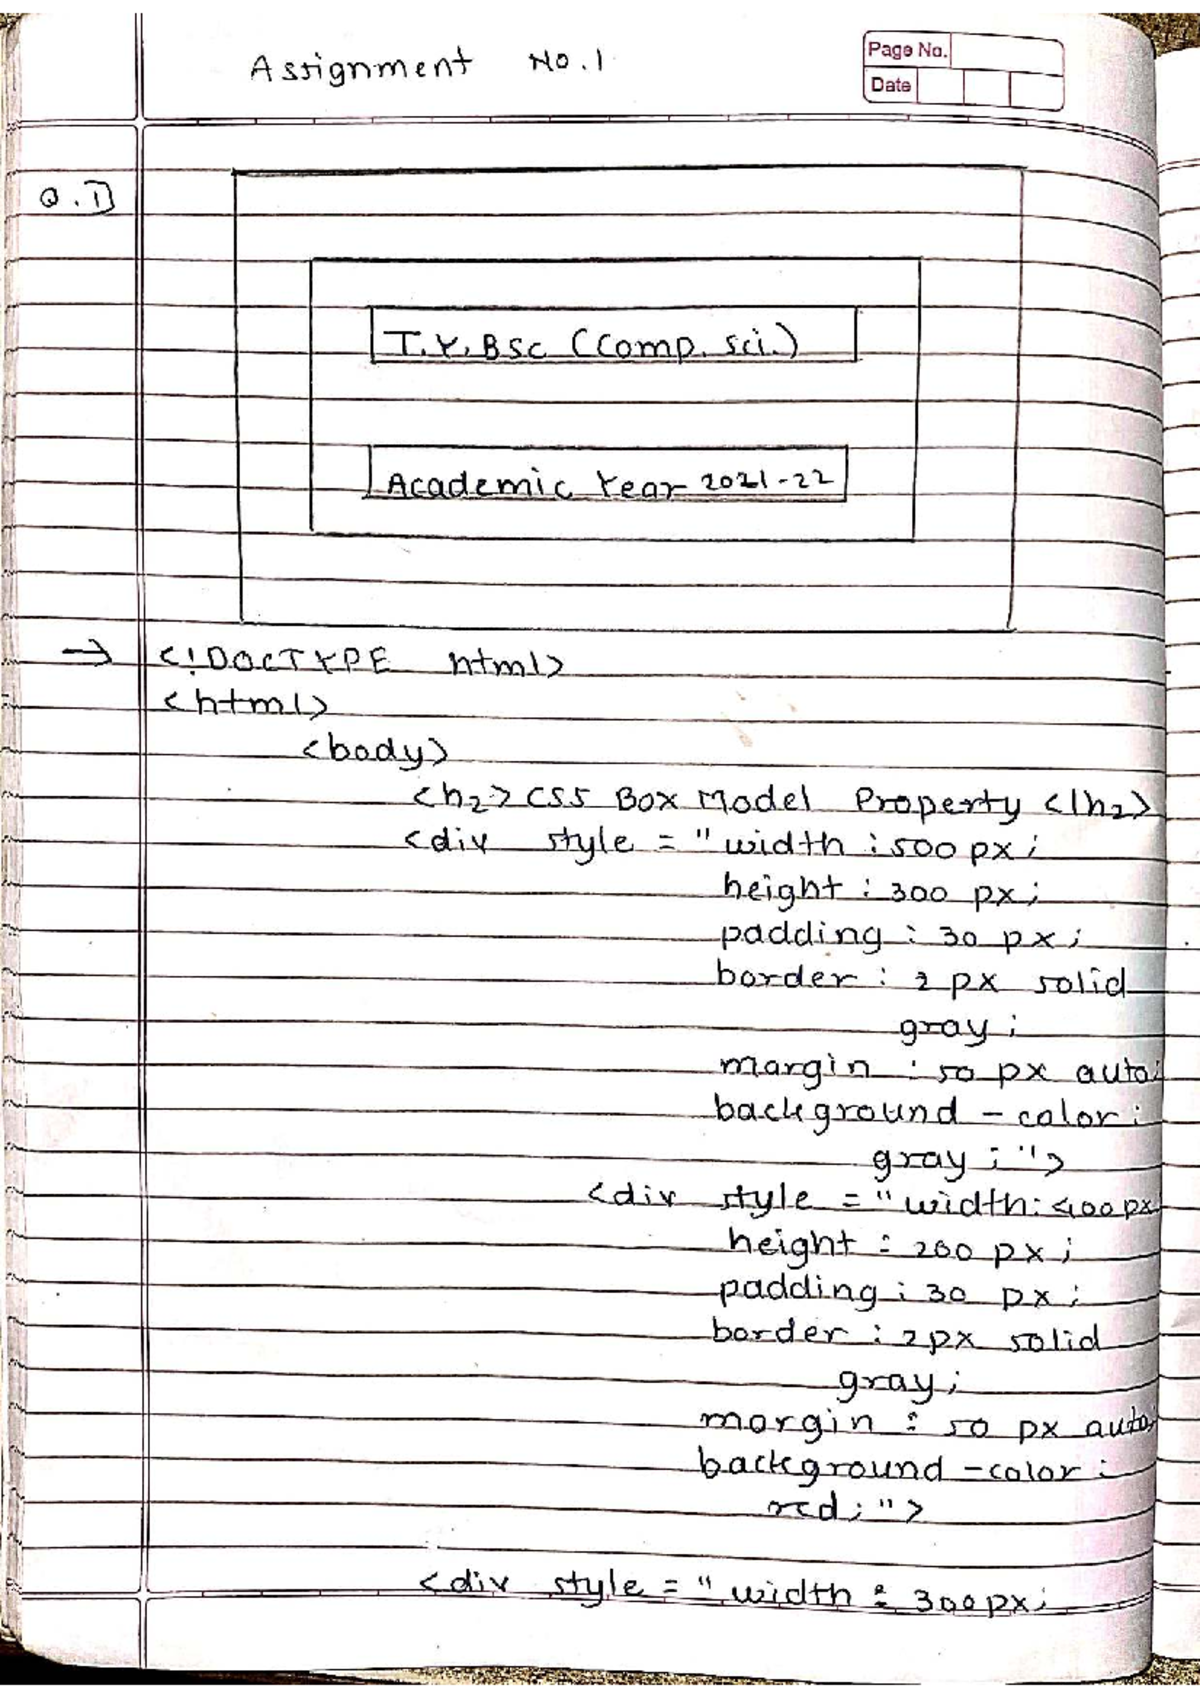 Assignment No.1
Page No.
Date
Q.1)
T.Y.BSc (Comp. sci.)
Academic Year 2021-22
→ <!DOCTYPE html>
<html>
<body>
<h2>CSS Box Model Property </h2>
<div style = "width : 500 px;
height : 300 px;
padding : 30 px;
border : 2 px solid
gray;
margin : 50 px auto;
background - color :
gray ; ">
<div style = "width: 400px
height : 200 px;
padding : 30 px;
border : 2px solid
gray;
margin : 50 px auto;
background -color :
red; ">
<div style = " width : 300px;